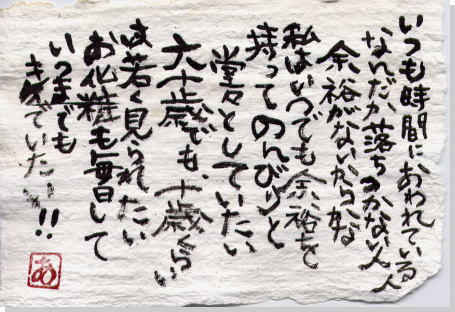 いつも時間におわれている人
なんだか落ちつかない人
余裕がないからかな
私はいつでも余裕を
持ってのんびりと
堂々としていたい
六十歳でも、十歳くらい
は若く見られたい
お化粧も毎日して
いつまでも
きれいでいたい!!
あ